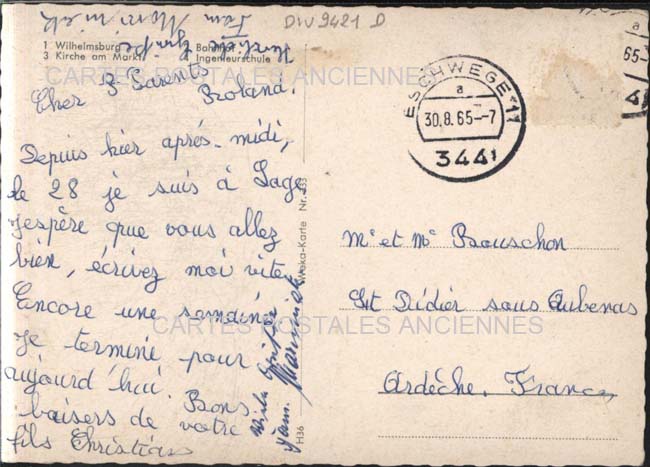 DIV 9421 D
1 Wilhelmsburg 2 Bahnhof
3 Kirche am Markt Ingenieurschule
CARTES POSTALES ANCIENNES
Cher Parents
Roland.
Depuis hier après-midi,
le 28 je suis à
j'espère que vous allez
bien, écrivez moi vite.
Encore une semaine
CARTES POSTALES ANCIENNES
Je terminé pour
aujourd'hui. Bons
baisers de votre
fils Christian
Weka-Karte Nr. 435
H36
ESCHWEGE 1
a
30.8.65--7
3441
a
65-
Mr et Me Bouschon
St Didier sous Aubenas
Ardèche. France